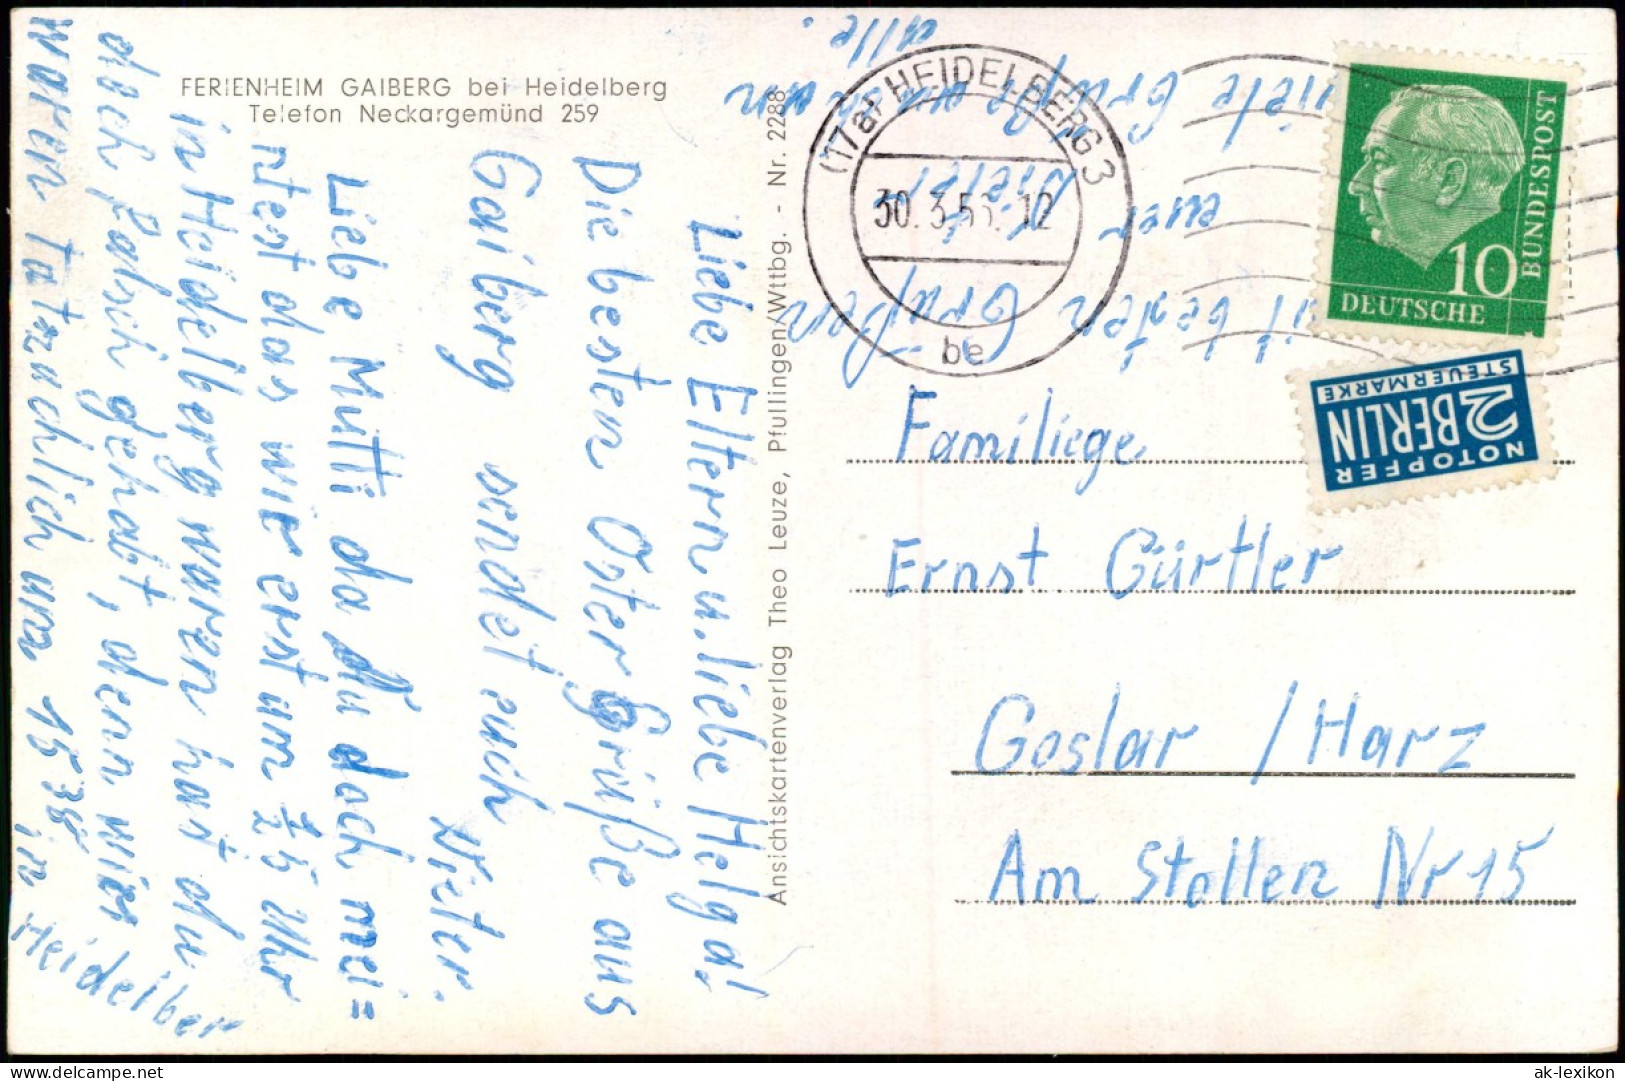 FERIENHEIM GAIBERG bei Heidelberg
Telefon Neckargemünd 259
Liebe Eltern u. liebe Helga!
Die besten Ostergrüße aus
Gaiberg sendet euch
Dieter.
Liebe Mutti da du doch mei=
ntest das wir erst um ½5 Uhr
in Heidelberg waren hast du
doch falsch gehabt, denn wir
waren tatzächlich um 15 38 in
Heidelber
Ansichtskartenverlag Theo Leuze, Pfullingen/Wttbg. - Nr. 2288
mit besten Grüßen
euer Dieter
viele Grüße auch an
alle.
(17a) HEIDELBERG 3
30. 3. 12
be
10
DEUTSCHE
BUNDESPOST
NOTOPFER
2 BERLIN
STEUERMARKE
Familiege
Ernst Gürtler
Goslar / Harz
Am Stollen Nr 15
ak-lexikon
DELCAMPE.NET